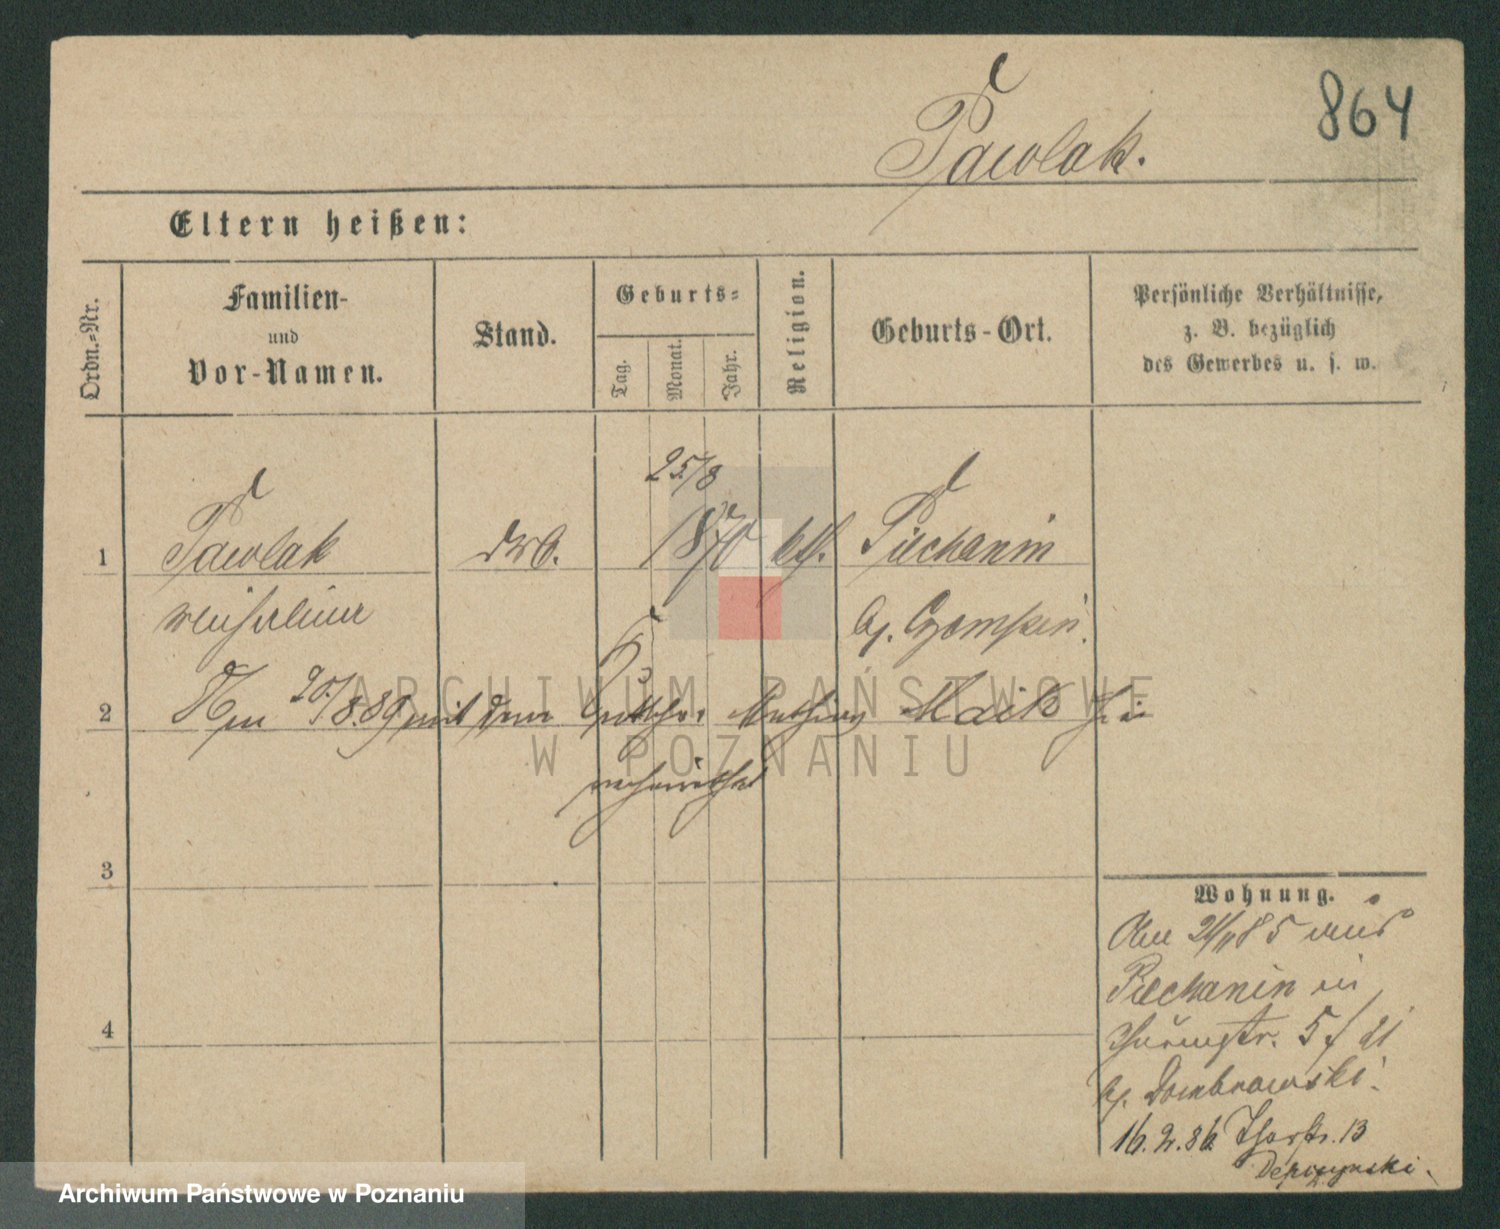 864
Pawlak.
Eltern heißen:
Ordn.-Nr.
Familien-
und
Vor-Namen.
Stand.
Geburts-
Tag.
Monat.
Jahr.
Religion.
Geburts-Ort.
Persönliche Verhältnisse,
z. B. bezüglich
des Gewerbes u. s. w.
25/8
1 Pawlak 1870 kth. Piechanin
b/. Czempin.
2 Am 20/8.89 mit dem Maik
verheirathet
3
4
Wohnung.
Am 24/11 85 aus
Piechanin in
5
b/. Dombrowski.
16.2.86. Thorstr. 13
ARCHIWUM PAŃSTWOWE
W POZNANIU
Archiwum Państwowe w Poznaniu